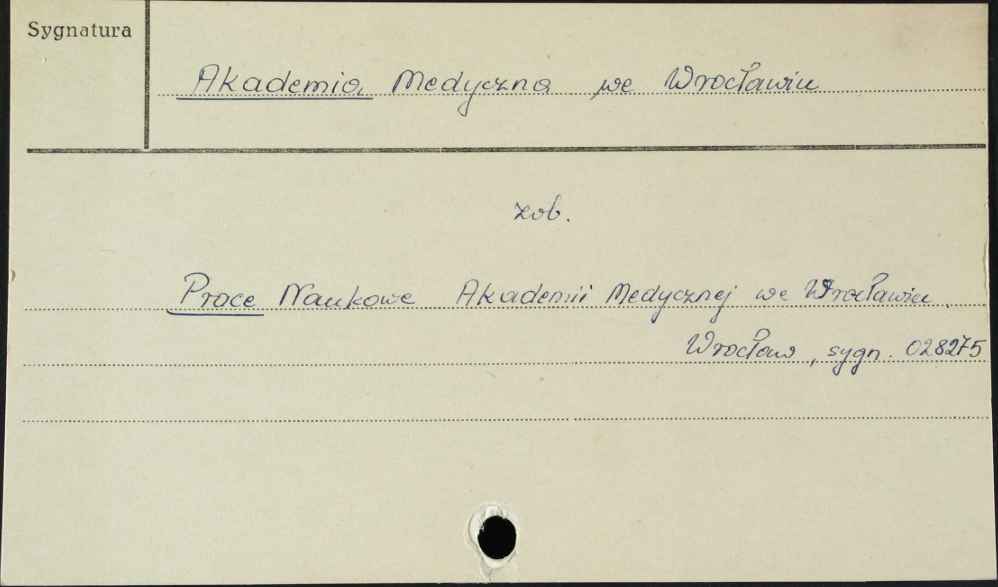 Sygnatura
Akademia Medyczna we Wrocławiu
zob.
Prace Naukowe Akademii Medycznej we Wrocławiu.
Wrocław, sygn. 028275